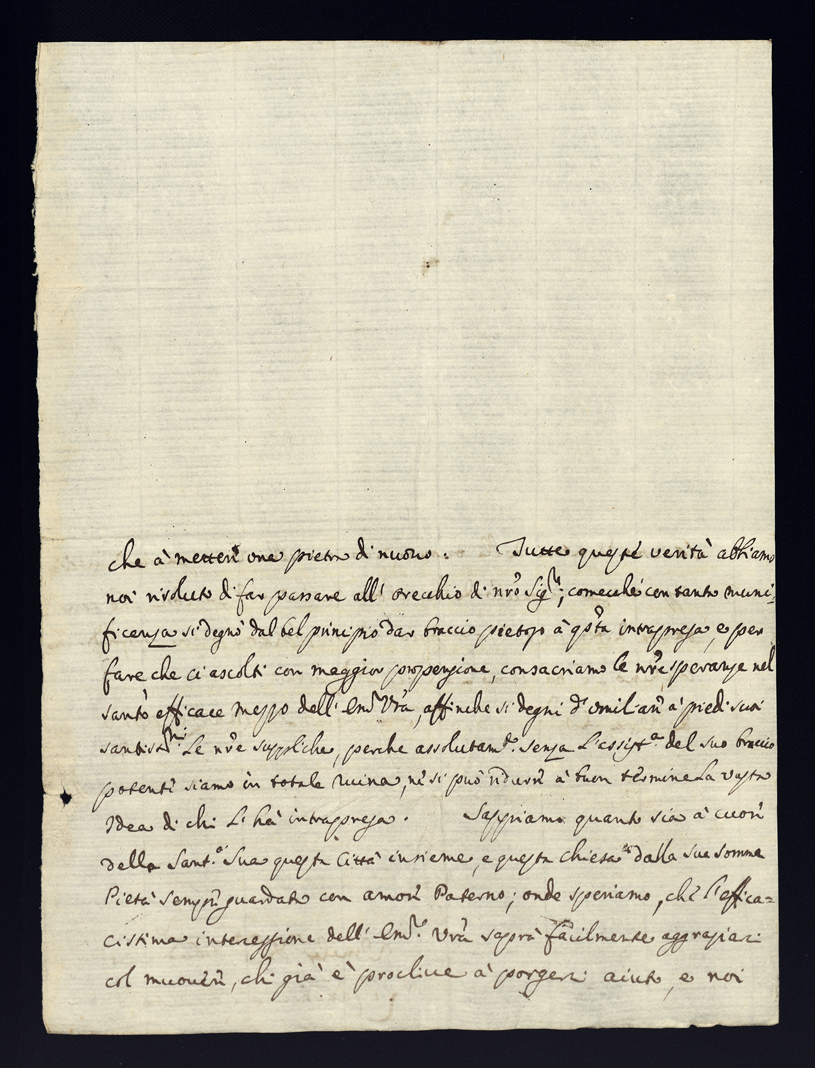 che à metter una pietra di nuovo. Tutte queste verità abbiamo
noi risoluto di far passare all' orecchio di nr̃o Sigre, comecche con tanta muni-
ficenza si degnò dal bel principio dar braccio pietoso à qsta intrapresa, e per
fare che ci ascolti con maggior propensione, consacriamo le nr̃e speranze nel
santo efficace mezzo dell' Emza Vr̃a, affinche si degni d'umiliare a' piedi suoi
santissmi Le nr̃e suppliche, perche assolutamte senza L'assista del suo braccio
potente siamo in totale ruina, nè si può ridurre à buon termine La vasta
Idea di chi L' hà intrapresa. Sappiamo quanto sia à cuore
della Santà Sua questa Città insieme, e questa chiesa dalla sua somma
Pietà sempre guardata con amore Paterno; onde speriamo, che l'effica=
cissima intercessione dell' Emza Vr̃a saprà facilmente aggraziare
col muovere, chi già è proclive à porgere aiuto, e noi